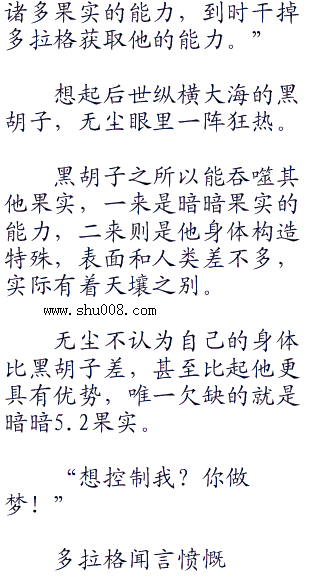 诸多果实的能力，到时干掉
多拉格获取他的能力。”
想起后世纵横大海的黑
胡子，无尘眼里一阵狂热。
黑胡子之所以能吞噬其
他果实，一来是暗暗果实的
能力，二来则是他身体构造
特殊，表面和人类差不多，
实际有着天壤之别。
www.shu008.com
无尘不认为自己的身体
比黑胡子差，甚至比起他更
具有优势，唯一欠缺的就是
暗暗5.2果实。
“想控制我？你做
梦！”
多拉格闻言愤慨